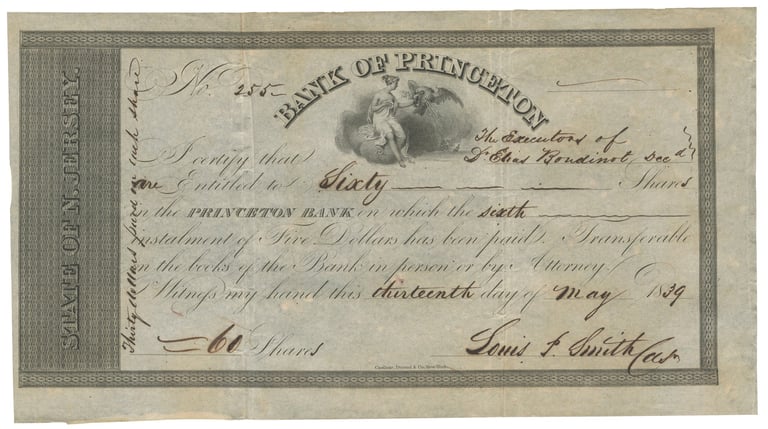 STATE OF N. JERSEY.
Thirty dollars paid on each share
No. 255
BANK OF PRINCETON
The Executors of
I certify that Dr Elias Boudinot, Decd
are Entitled to Sixty Shares
in the PRINCETON BANK on which the sixth
instalment of Five Dollars has been paid. Transferable
on the books of the Bank in person or by Attorney
Witness my hand this thirteenth day of May 1839
60 Shares Louis F. Smith Cas